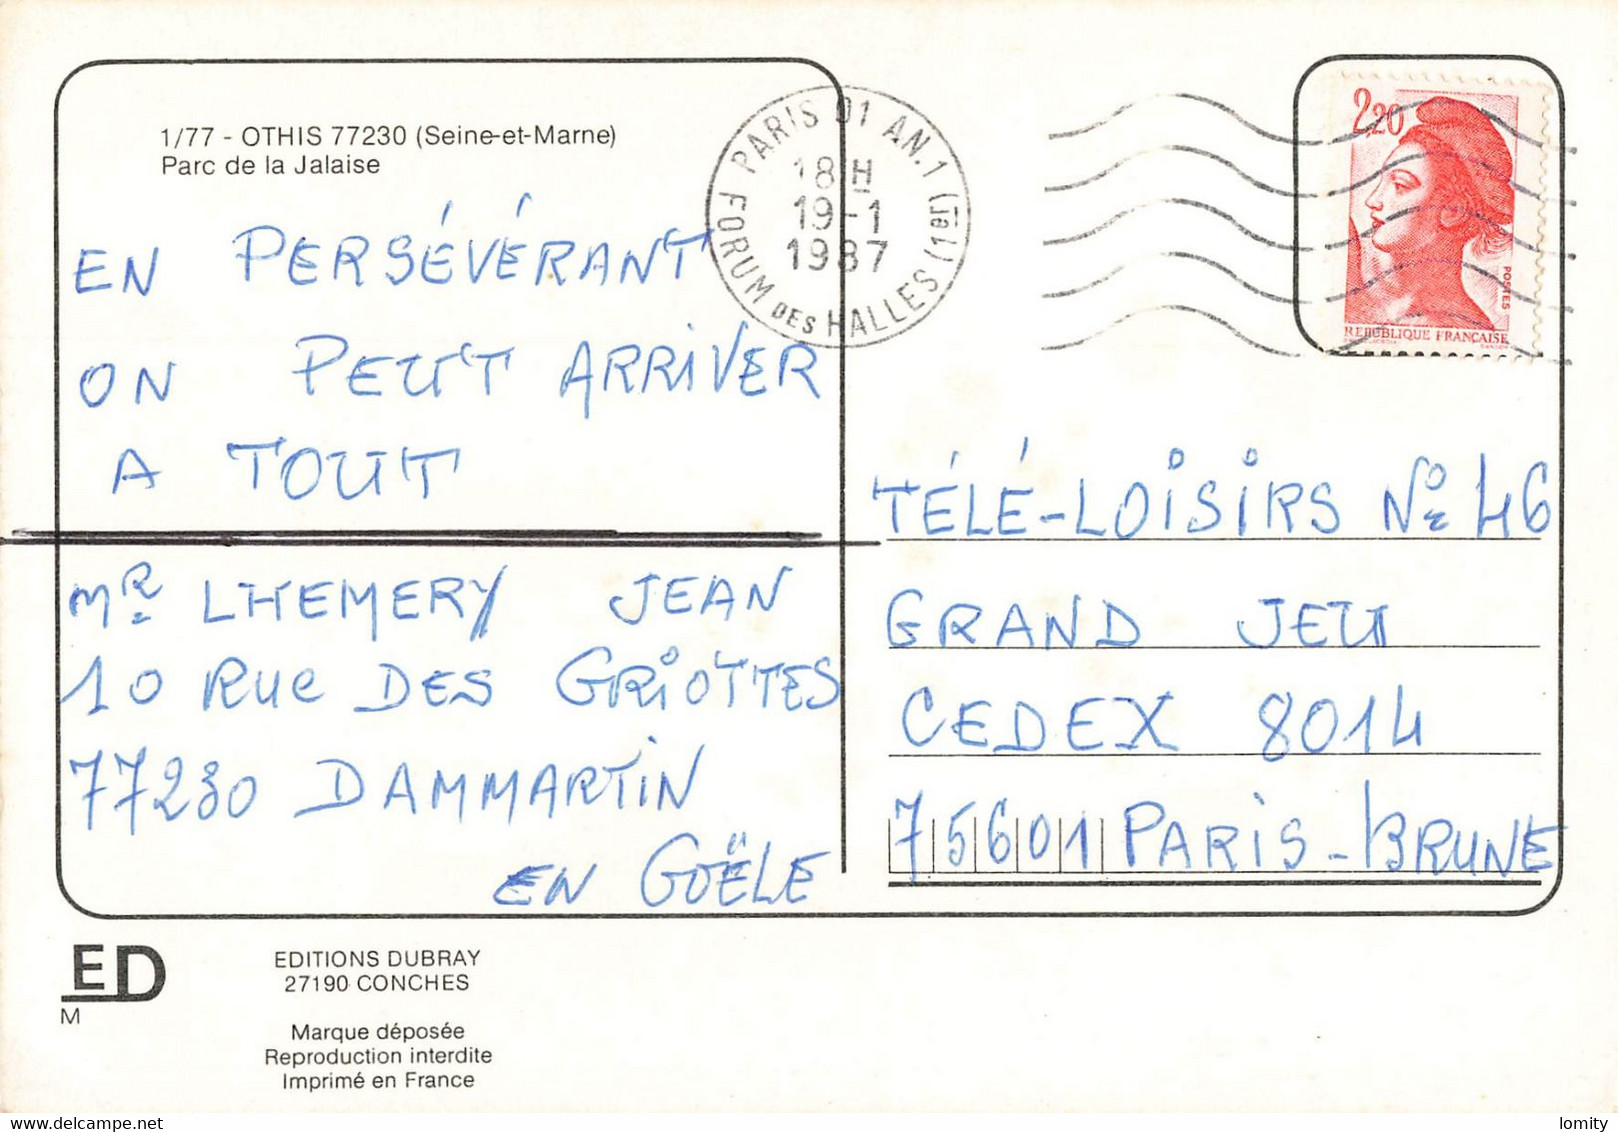 1/77 - OTHIS 77230 (Seine-et-Marne)
Parc de la Jalaise
EN PERSÉVÉRANT
ON PEUT ARRIVER
A TOUT
MR LHEMERY JEAN
10 RUE DES GRIOTTES
77230 DAMMARTIN
EN GOËLE
PARIS 01 AN.1 (1er)
18 H
19-1
1987
FORUM DES HALLES
2,20
POSTES
REPUBLIQUE FRANÇAISE
TÉLÉ-LOISIRS No 46
GRAND JEU
CEDEX 8014
75601 PARIS-BRUNE
ED
M
EDITIONS DUBRAY
27190 CONCHES
Marque déposée
Reproduction interdite
Imprimé en France
lomity